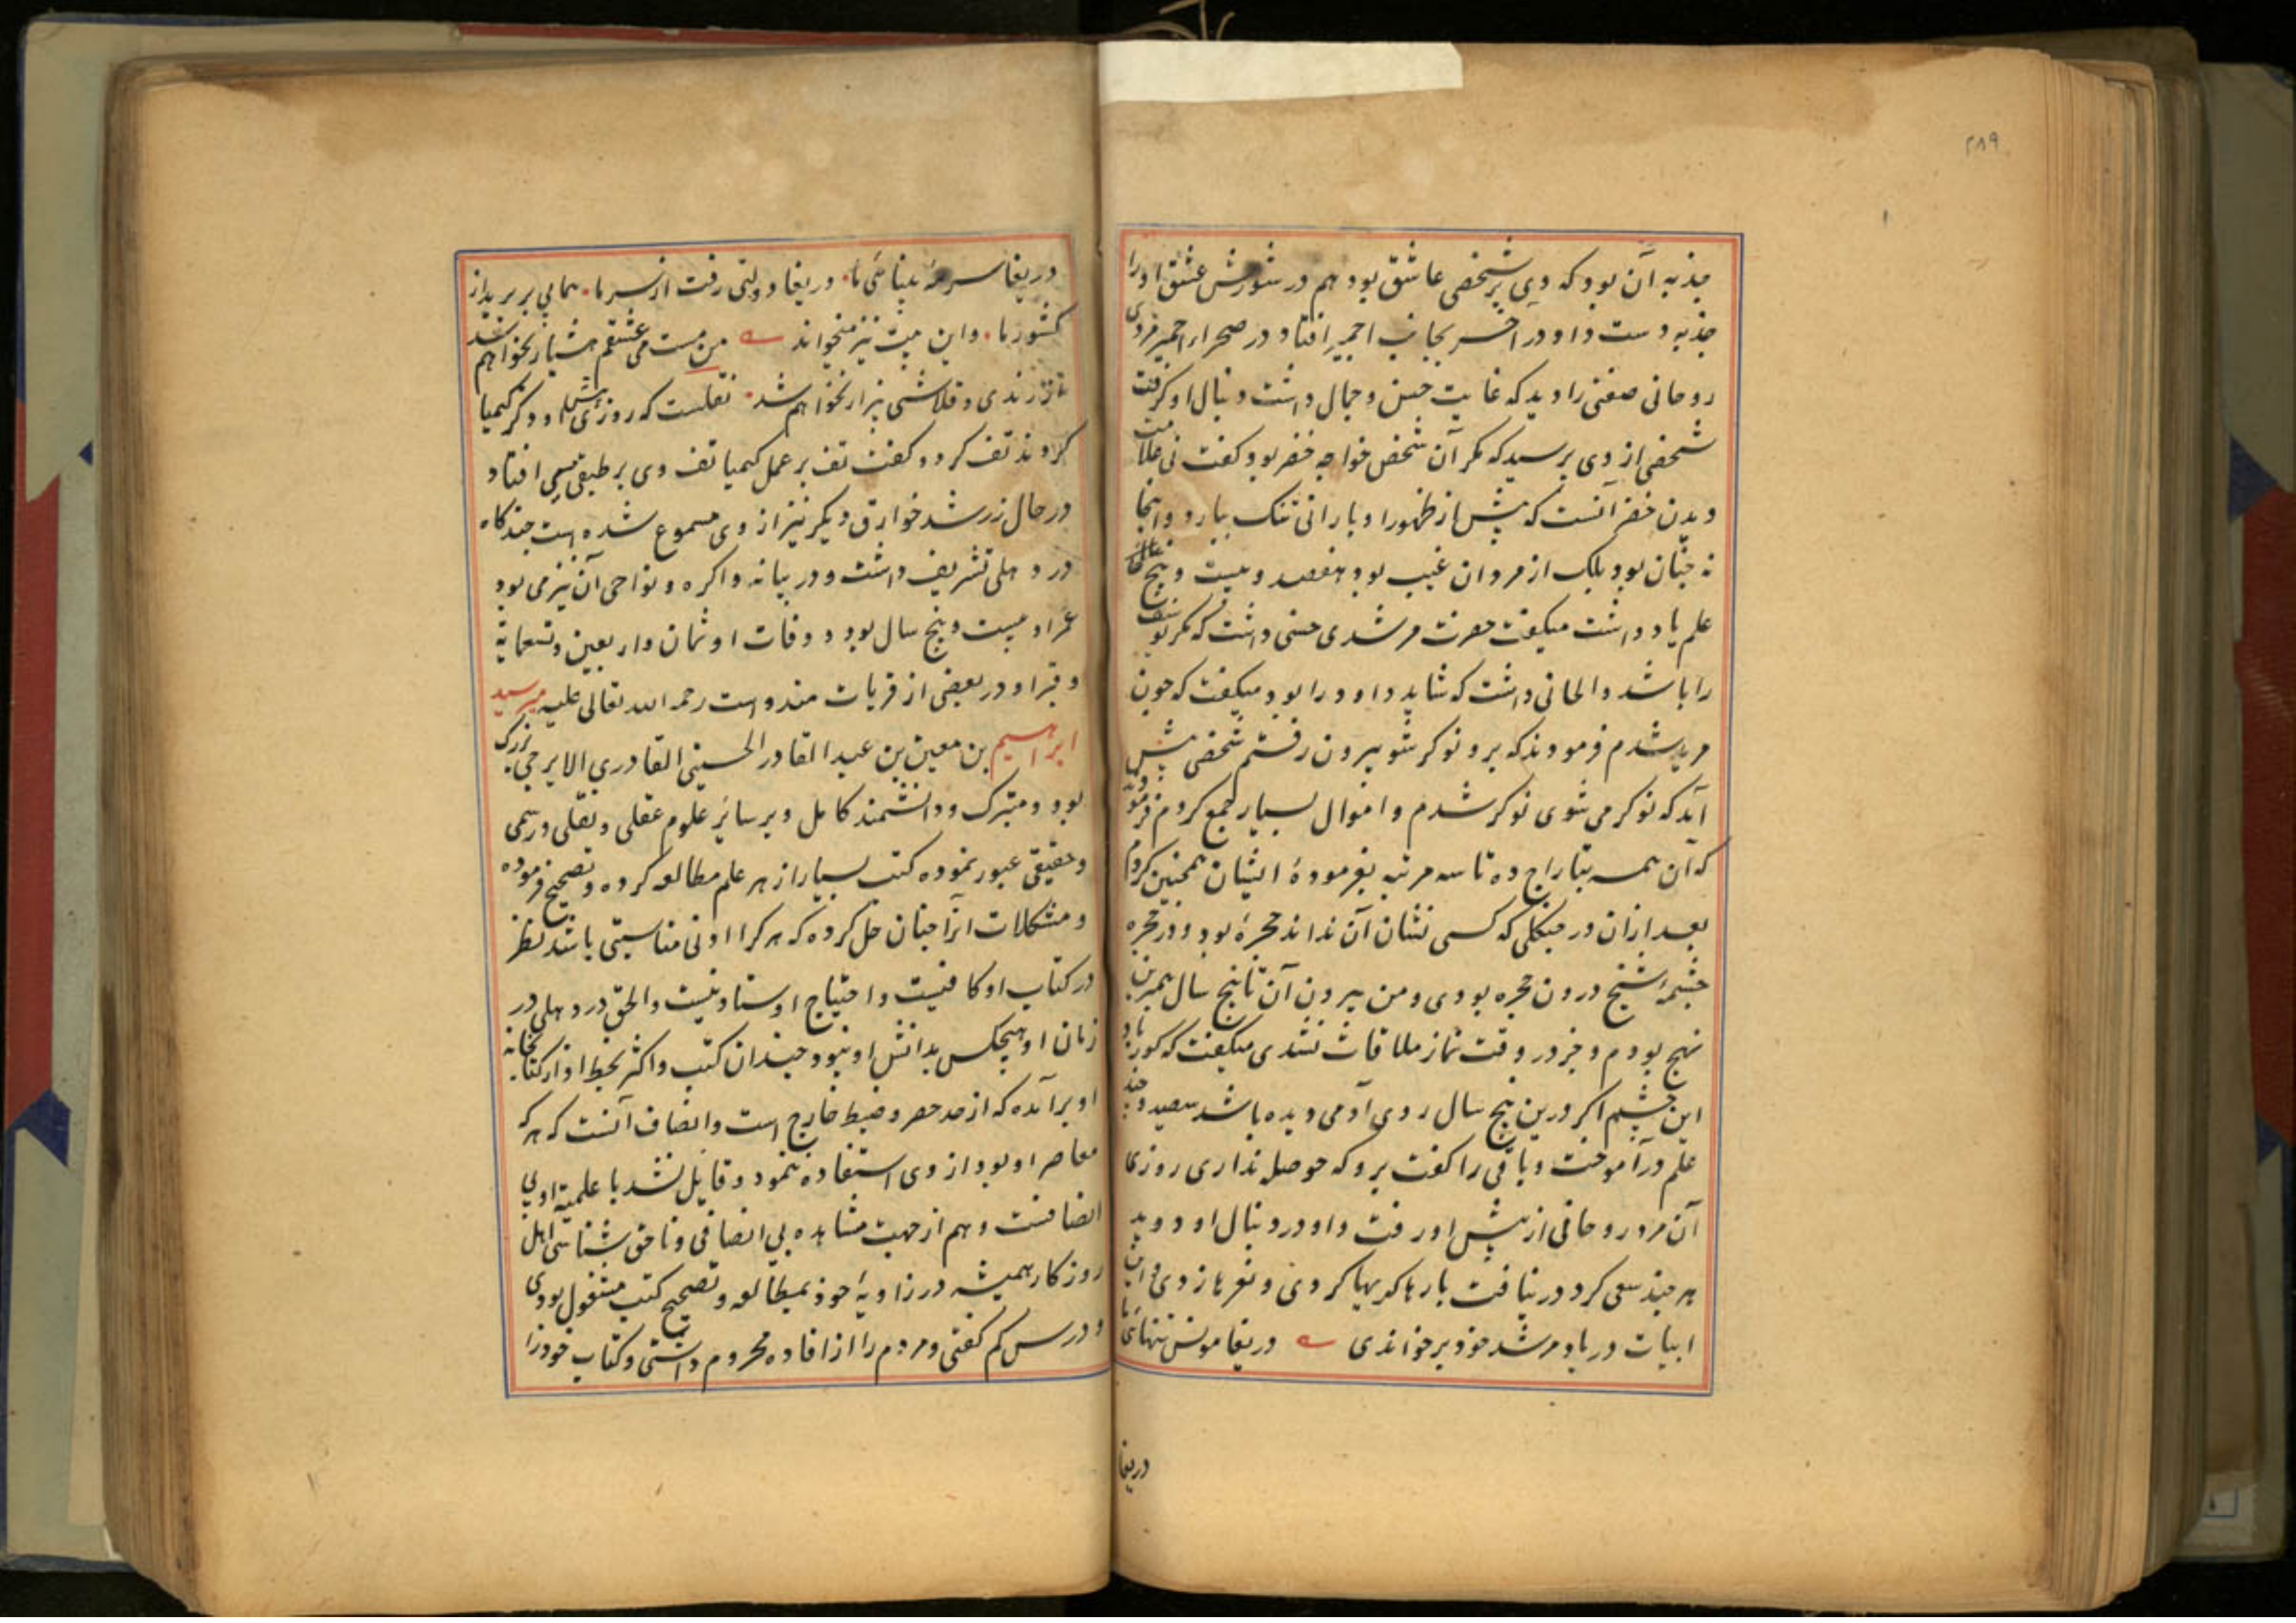 ۲۸۹
جذبه آن بود که وی بر شخصی عاشق بود هم در شورش عشق او را
جذبه دست داد و در آخر بجانب اجمیر افتاد در صحراء اجمیر مردی
روحانی صفتی را دید که غایت حسن و جمال داشت دنبال او گرفت
شخصی از وی پرسید که مگر آن شخص خواجه خضر بود گفت نی علامت
دیدن خضر آنست که پیش از ظهور او بارانی تنک ببارد و اینجا
نه چنان بود بلک از مردان غیب بود هفصد و بیست و پنج
علم یاد داشت میگفت حضرت مرشدی حسنی داشت که مگر یوسف
را باشد و الحانی داشت که شاید داود را بود و میگفت که چون
مرید شدم فرمودند که برو نوکر شو بیرون رفتم شخصی پیش
آید که نوکر می شوی نوکر شدم و اموال بسیار جمع کردم فرمود
که آن همه بتاراج ده تا سه مرتبه بفرمودۀ ایشان همچنین کردم
بعد ازان در جنگلی که کسی نشان آن نداند حجرۀ بود و در حجره
چشمۀ شیخ درون حجره بودی و من بیرون آن تا پنج سال همبرین
نهج بودم و جز در وقت نماز ملاقات نشدی میگفت که کور باد
این چشم اگر درین پنج سال روی آدمی دیده باشد سیصد و چند
علم درآموخت و باقی را گفت برو که حوصله نداری روزی
آن مرد روحانی از پیش او رفت و او در دنبال او دوید
هر چند سعی کرد در نیافت بارها گریها کردی و نعرها زدی و این
ابیات در یاد مرشد خود برخواندی دریغا مونس تنهائی ما
دریغا
دریغا سرمۀ بینائی ما۰ دریغا دولتی رفت از سر ما۰ همایی بر پرید از
کشور ما۰ و این بیت نیز میخواند من مست می عشقم هشیار نخواهم شد
وز رندی و قلاشی بیزار نخواهم شد۰ نقلست که روزی پیش او ذکر کیمیا
کردند تف کرد و گفت تف بر عمل کیمیا تف وی بر طبقی مسی افتاد
در حال زر شد خوارق دیگر نیز از وی مسموع شده است چندگاه
در دهلی تشریف داشت و در بیانه و اکره و نواحی آن نیز می بود
عمر او بیست و پنج سال بود و وفات او ثمان و اربعین و تسعمایة
و قبر او در بعضی از قریات مندو است رحمه الله تعالی علیه میر سید
ابراهیم بن معین بن عبد القادر الحسینی القادری الایرجی بزرگ
بود و متبرک و دانشمند کامل و بر سایر علوم عقلی و نقلی و رسمی
و حقیقی عبور نموده کتب بسیار از هر علم مطالعه کرده و تصحیح فرموده
و مشکلات آنرا چنان حل کرده که هر کرا ادنی مناسبتی باشد نظر
در کتاب او کافیست و احتیاج اوستاد نیست والحق در دهلی در
زمان او هیچکس بدانش او نبود چندان کتب و اکثر بخط او از کتابخانه
او برآمده که از حد حصر و ضبط خارج است و انصاف آنست که هر که
معاصر او بود از وی استفاده ننمود و قایل نشد با علمیة او بی
انصافست و هم از جهت مشاهده بی انصافی و ناحق شناسی اهل
روزکار همیشه در زاویۀ خود بمطالعه و تصحیح کتب مشغول بودی
و درس کم گفتی و مردم را از افاده محروم داشتی و کتاب خود را